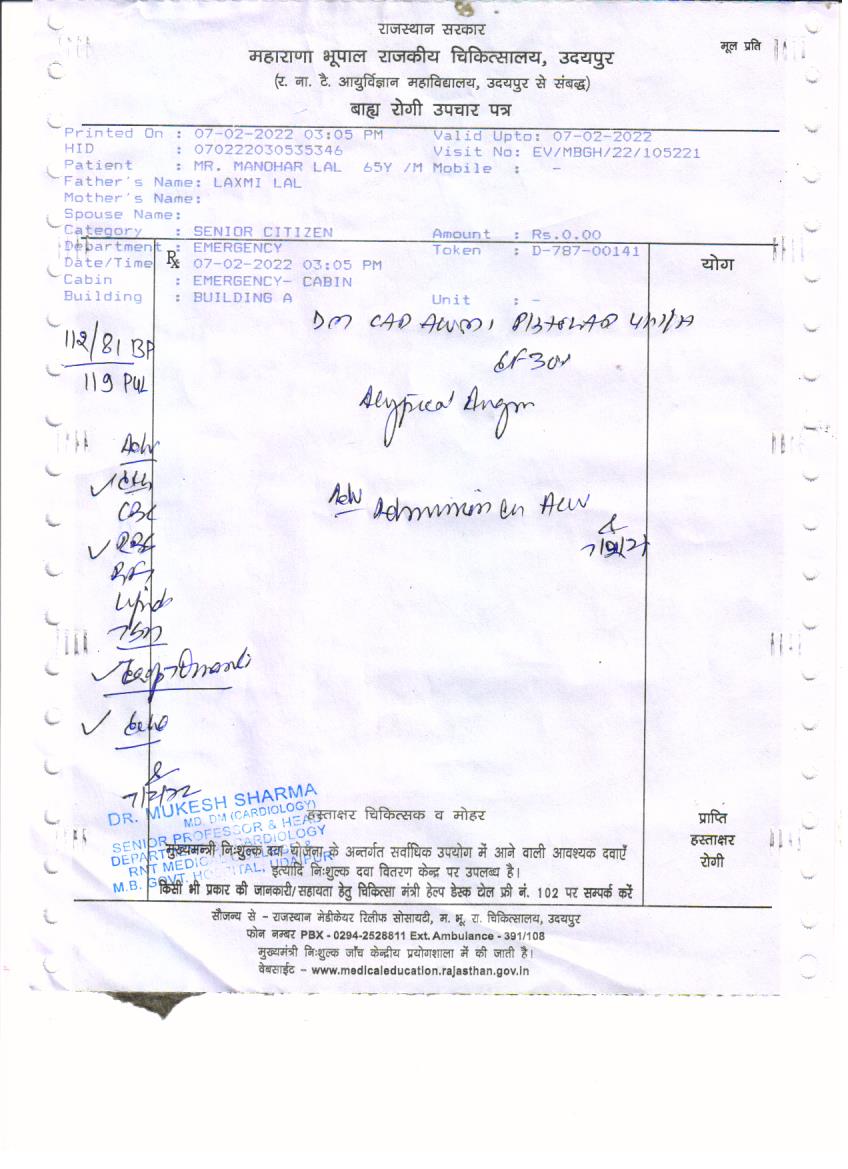 राजस्थान सरकार
महाराणा भूपाल राजकीय चिकित्सालय, उदयपुर
मूल प्रति
(र. ना. टै. आयुर्विज्ञान महाविद्यालय, उदयपुर से संबद्ध)
बाह्य रोगी उपचार पत्र
Printed On : 07-02-2022 03:05 PM Valid Upto: 07-02-2022
HID : 070222030535346 Visit No: EV/MBGH/22/105221
Patient : MR. MANOHAR LAL 65Y /M Mobile : -
Father's Name: LAXMI LAL
Mother's Name:
Spouse Name:
Category : SENIOR CITIZEN Amount : Rs.0.00
Department : EMERGENCY Token : D-787-00141
Date/Time : 07-02-2022 03:05 PM
Cabin : EMERGENCY- CABIN
Building : BUILDING A Unit : -
Rx
योग
DM CAD AWMI
112/81 BP
119 Pul
EF 30%
Atypical Angin
Adv
CBC
RBS
RFT
Lipid
Adv Admission in
7/2/22
Echo
7/2/22
DR. MUKESH SHARMA
M.D. DM (CARDIOLOGY)
SENIOR PROFESSOR & HEAD
CARDIOLOGY
RNT MEDICAL
M.B. GOVT. HOSPITAL, UDAIPUR
हस्ताक्षर चिकित्सक व मोहर
प्राप्ति
हस्ताक्षर
रोगी
मुख्यमन्त्री निःशुल्क दवा योजना के अन्तर्गत सर्वाधिक उपयोग में आने वाली आवश्यक दवाएँ
इत्यादि निःशुल्क दवा वितरण केन्द्र पर उपलब्ध है।
किसी भी प्रकार की जानकारी/सहायता हेतु चिकित्सा मंत्री हेल्प डेस्क टोल फ्री नं. 102 पर सम्पर्क करें
सौजन्य से - राजस्थान मेडीकेयर रिलीफ सोसायटी, म. भू. रा. चिकित्सालय, उदयपुर
फोन नम्बर PBX - 0294-2528811 Ext. Ambulance - 391/108
मुख्यमंत्री निःशुल्क जाँच केन्द्रीय प्रयोगशाला में की जाती है।
वेबसाईट - www.medicaleducation.rajasthan.gov.in